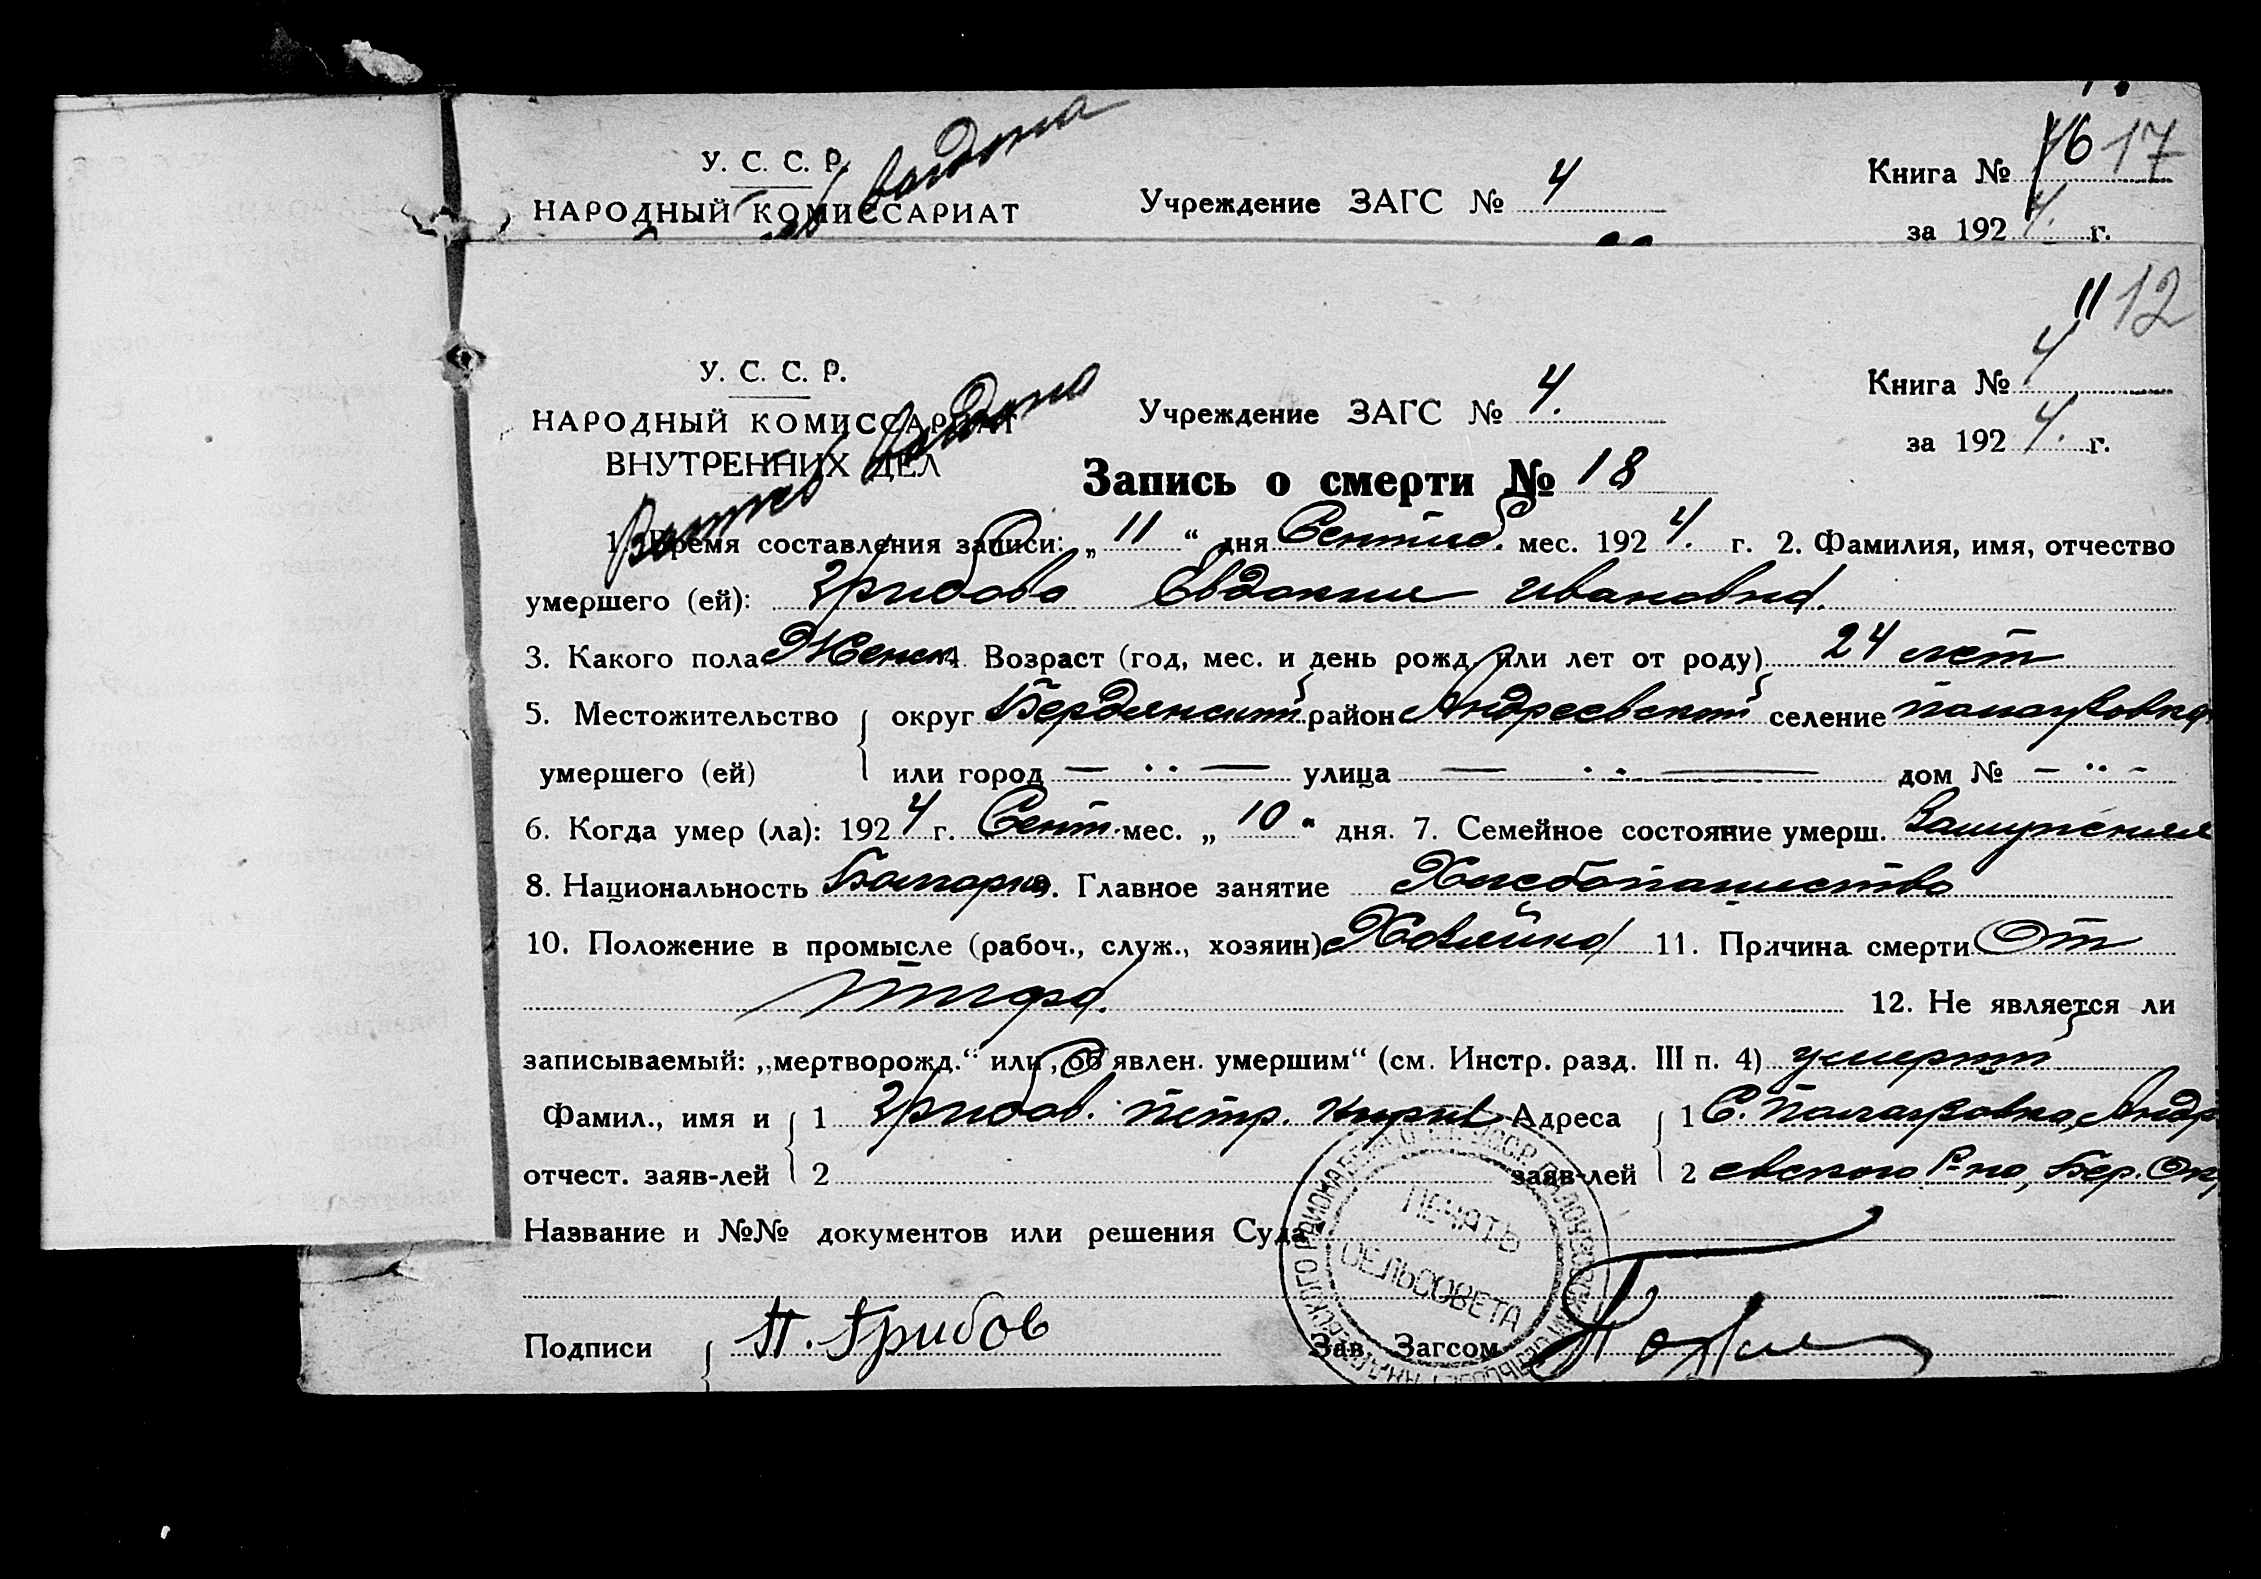 У. С. С. Р.
НАРОДНЫЙ КОМИССАРИАТ
Учреждение ЗАГС № 4
Книга № 16 17
за 192 4 г.
11 12
У. С. С. Р.
НАРОДНЫЙ КОМИССАРИАТ
ВНУТРЕННИХ ДЕЛ
Учреждение ЗАГС № 4.
Книга № 4
за 192 4. г.
Запись о смерти № 18
1. Время составления записи: „ 11 “ дня Сентяб. мес. 192 4. г. 2. Фамилия, имя, отчество
умершего (ей): Грибова Евдокия Ивановна.
3. Какого пола Женск 4. Возраст (год, мес. и день рожд. или лет от роду) 24 лет
5. Местожительство округ Бердянский район Андреевский селение Полоузовка
умершего (ей) или город — ·· — улица — ·· — дом № — ·· -
6. Когда умер (ла): 192 4 г. Сент. мес. „ 10 “ дня. 7. Семейное состояние умерш. Замужняя
8. Национальность Болгарка 9. Главное занятие Хлебопашество
10. Положение в промысле (рабоч., служ., хозяин) Хозяйка 11. Причина смерти От
тифа. 12. Не является ли
записываемый: „мертворожд.“ или „об'явлен. умершим“ (см. Инстр. разд. III п. 4)
Фамил., имя и 1 Грибов. Петр. Адреса 1 С. Полоузовка, Андре
отчест. заяв-лей 2 заяв-лей 2 евского Р-на, Бер. Окр,
Название и №№ документов или решения Суда
ПЕЧАТЬ
СЕЛЬСОВЕТА
Подписи П. Грибов Зав. Загсом